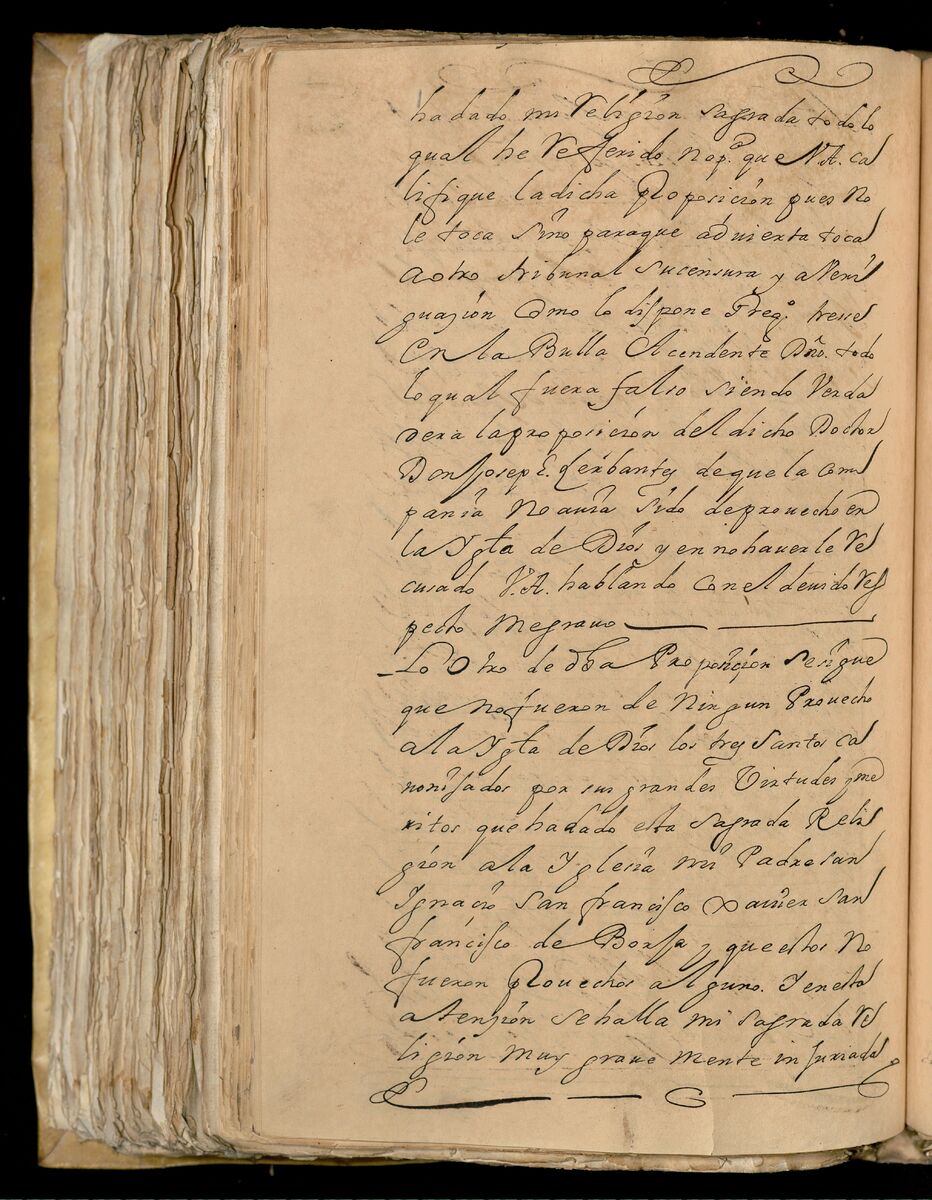 ha dado mi Religion sagrada todo lo
qual he Referido no p.ª que V.A. ca
lifique la dicha Proposiciòn pues No
le toca sino para que advierta toca
a otro tribunal su censura y averi
guazion Como lo dispone Greg.º trese
En la Bulla Acendente Dño. todo
lo qual fuera falso siendo Verda
dera la proposiciòn del dicho Doctor
Don Josepe. Cerbantes de que la com
pania No avia sido de provecho en
la Ygla de Dios y en no haverle Re
cusado V.A. hablando Con el devido Res
pecto Me gravo
Lo Otro de dha Proposiçion se sigue
que No fueron de Ningun Provecho
a la Ygla de Dios los tres Santos ca
nonisados por sus grandes Virtudes y me
ritos que ha dado esta sagrada Reli
gion a la Yglesia mi Padre san
Ygnacio san francisco Xavier san
francisco de Borja y que estos No
fueron Provechos alguno. Y en esta
atenzion se halla mi sagrada Re
ligion Muy grave mente injuriada